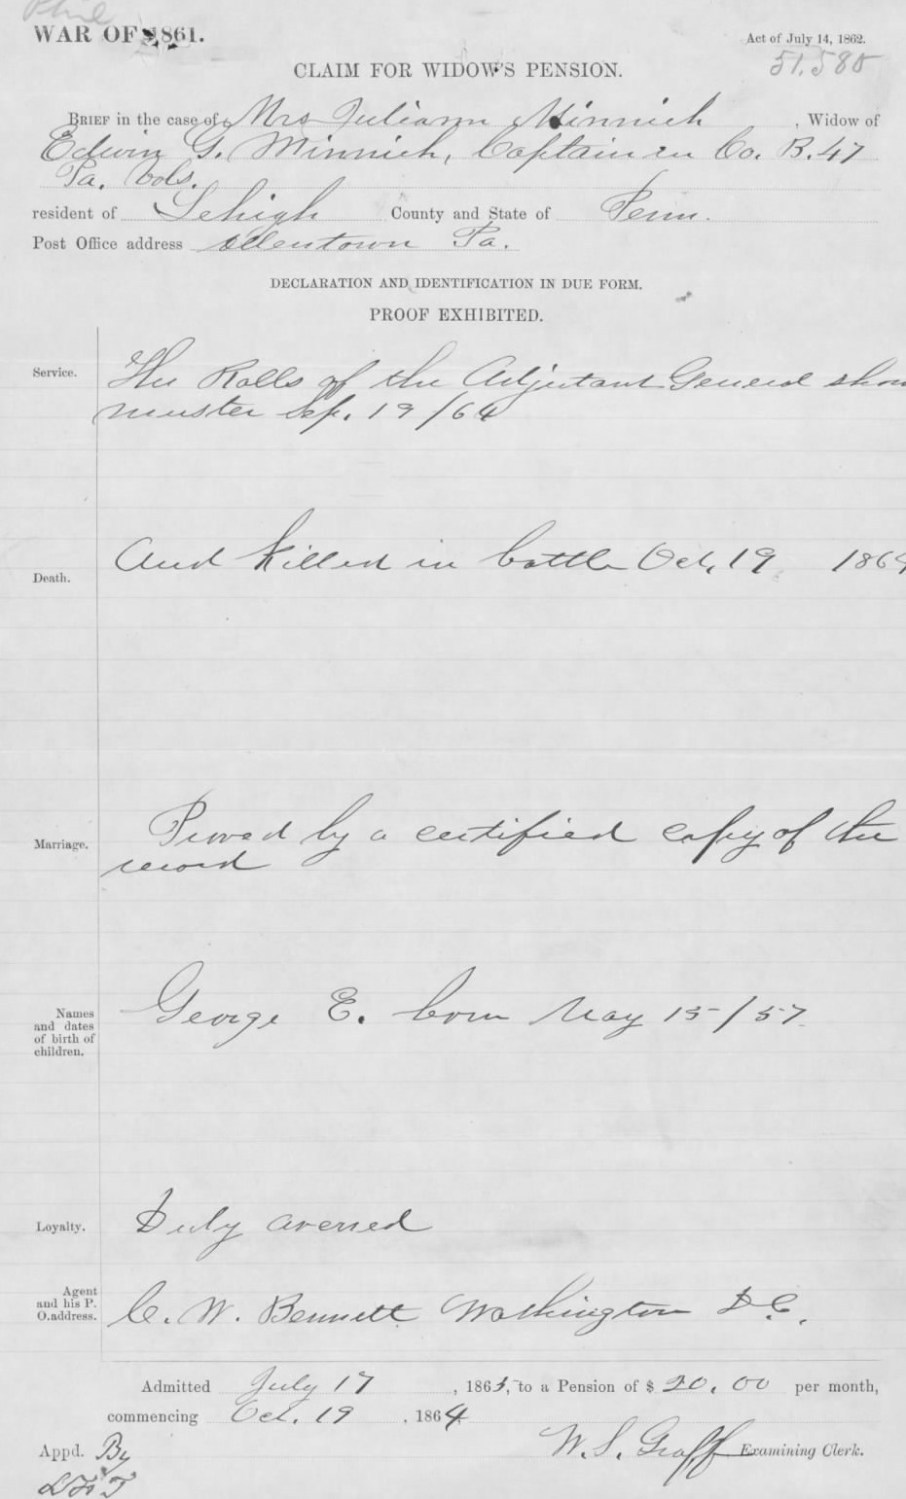 Phil
WAR OF 1861.
Act of July 14, 1862.
51.585
CLAIM FOR WIDOW'S PENSION.
BRIEF in the case of Mrs Juliann Minnich , Widow of
Edwin G. Minnich, Captain in Co. B. 47
Pa. Vols.
resident of Lehigh County and State of Penn.
Post Office address Allentown Pa.
DECLARATION AND IDENTIFICATION IN DUE FORM.
PROOF EXHIBITED.
Service. The Rolls of the Adjutant General show
muster Sep. 19/64
Death. And killed in battle Oct, 19 1864
Marriage. Proved by a certified copy of the
record
Names and dates of birth of children. George E. born May 15/57.
Loyalty. Duly averred
Agent and his P. O. address. C. W. Bennett Washington D.C.
Admitted July 17 , 1865, to a Pension of $ 20.00 per month,
commencing Oct. 19 , 1864
W. S. Graff Examining Clerk.
Appd. By